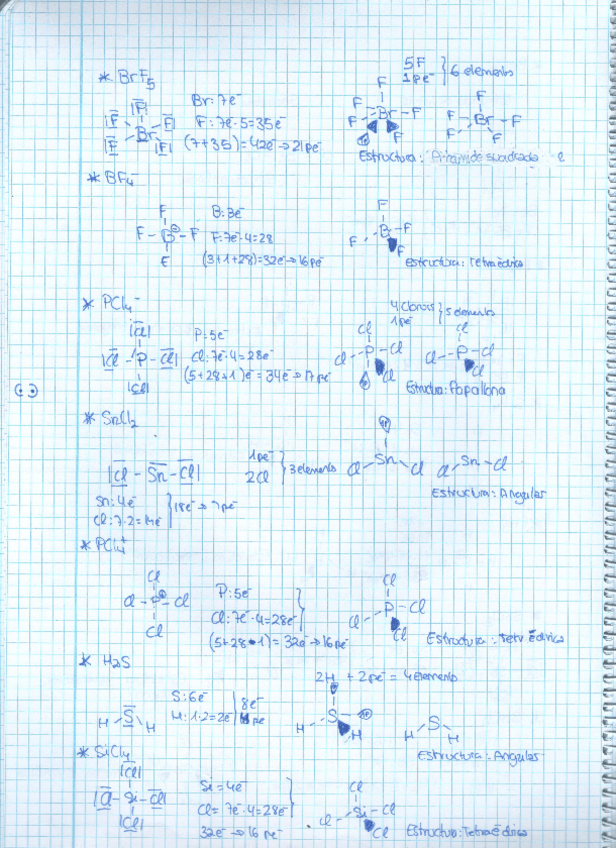 * BrF5
Br: 7e-
F: 7e-·5=35e-
(7+35)=42e- → 21pe-
5F
1pe- } 6 elements
Estructura: Piramide cuadrada
* BF4-
B: 3e-
F: 7e-·4=28
(3+1+28)=32e- → 16pe-
Estructura: Tetraédrica
* PCl4-
P: 5e-
Cl: 7e-·4=28e-
(5+28+1)e- = 34e- → 17pe-
4 Cloros
1pe- } 5 elements
Estructura: Papallona
* SnCl2
|Cl - Sn - Cl|
1pe-
2Cl } 3 elements
Sn: 4e-
Cl: 7·2=14e- } 18e- → 9pe-
Estructura: Angular
* PCl4+
P: 5e-
Cl: 7e-·4=28e-
(5+28-1)=32e- → 16pe-
Estructura: Tetraédrica
* H2S
S: 6e-
H: 1·2=2e- | 8e-
4pe-
2H + 2pe- = 4 elements
Estructura: Angular
* SiCl4
Si=4e-
Cl= 7e-·4=28e-
32e- → 16pe-
Estructura: Tetraédrica